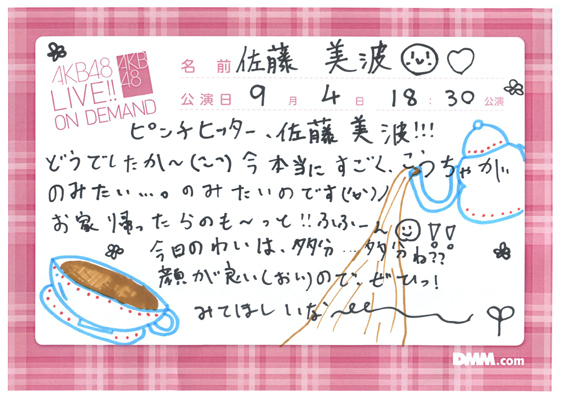 AKB48
LIVE!!
ON DEMAND
AKB
48
名前 佐藤 美波
公演日 9月4日 18:30公演
ピンチヒッター、佐藤美波!!!
どうでしたか〜 今本当にすごく、こうちゃが
のみたい...。のみたいのです
お家帰ったらのも〜っと!!ふふーん
今日のわいは、多分...多分ね??
顔が良い(おい)ので、ぜひっ!
みてほしいな〜
DMM.com